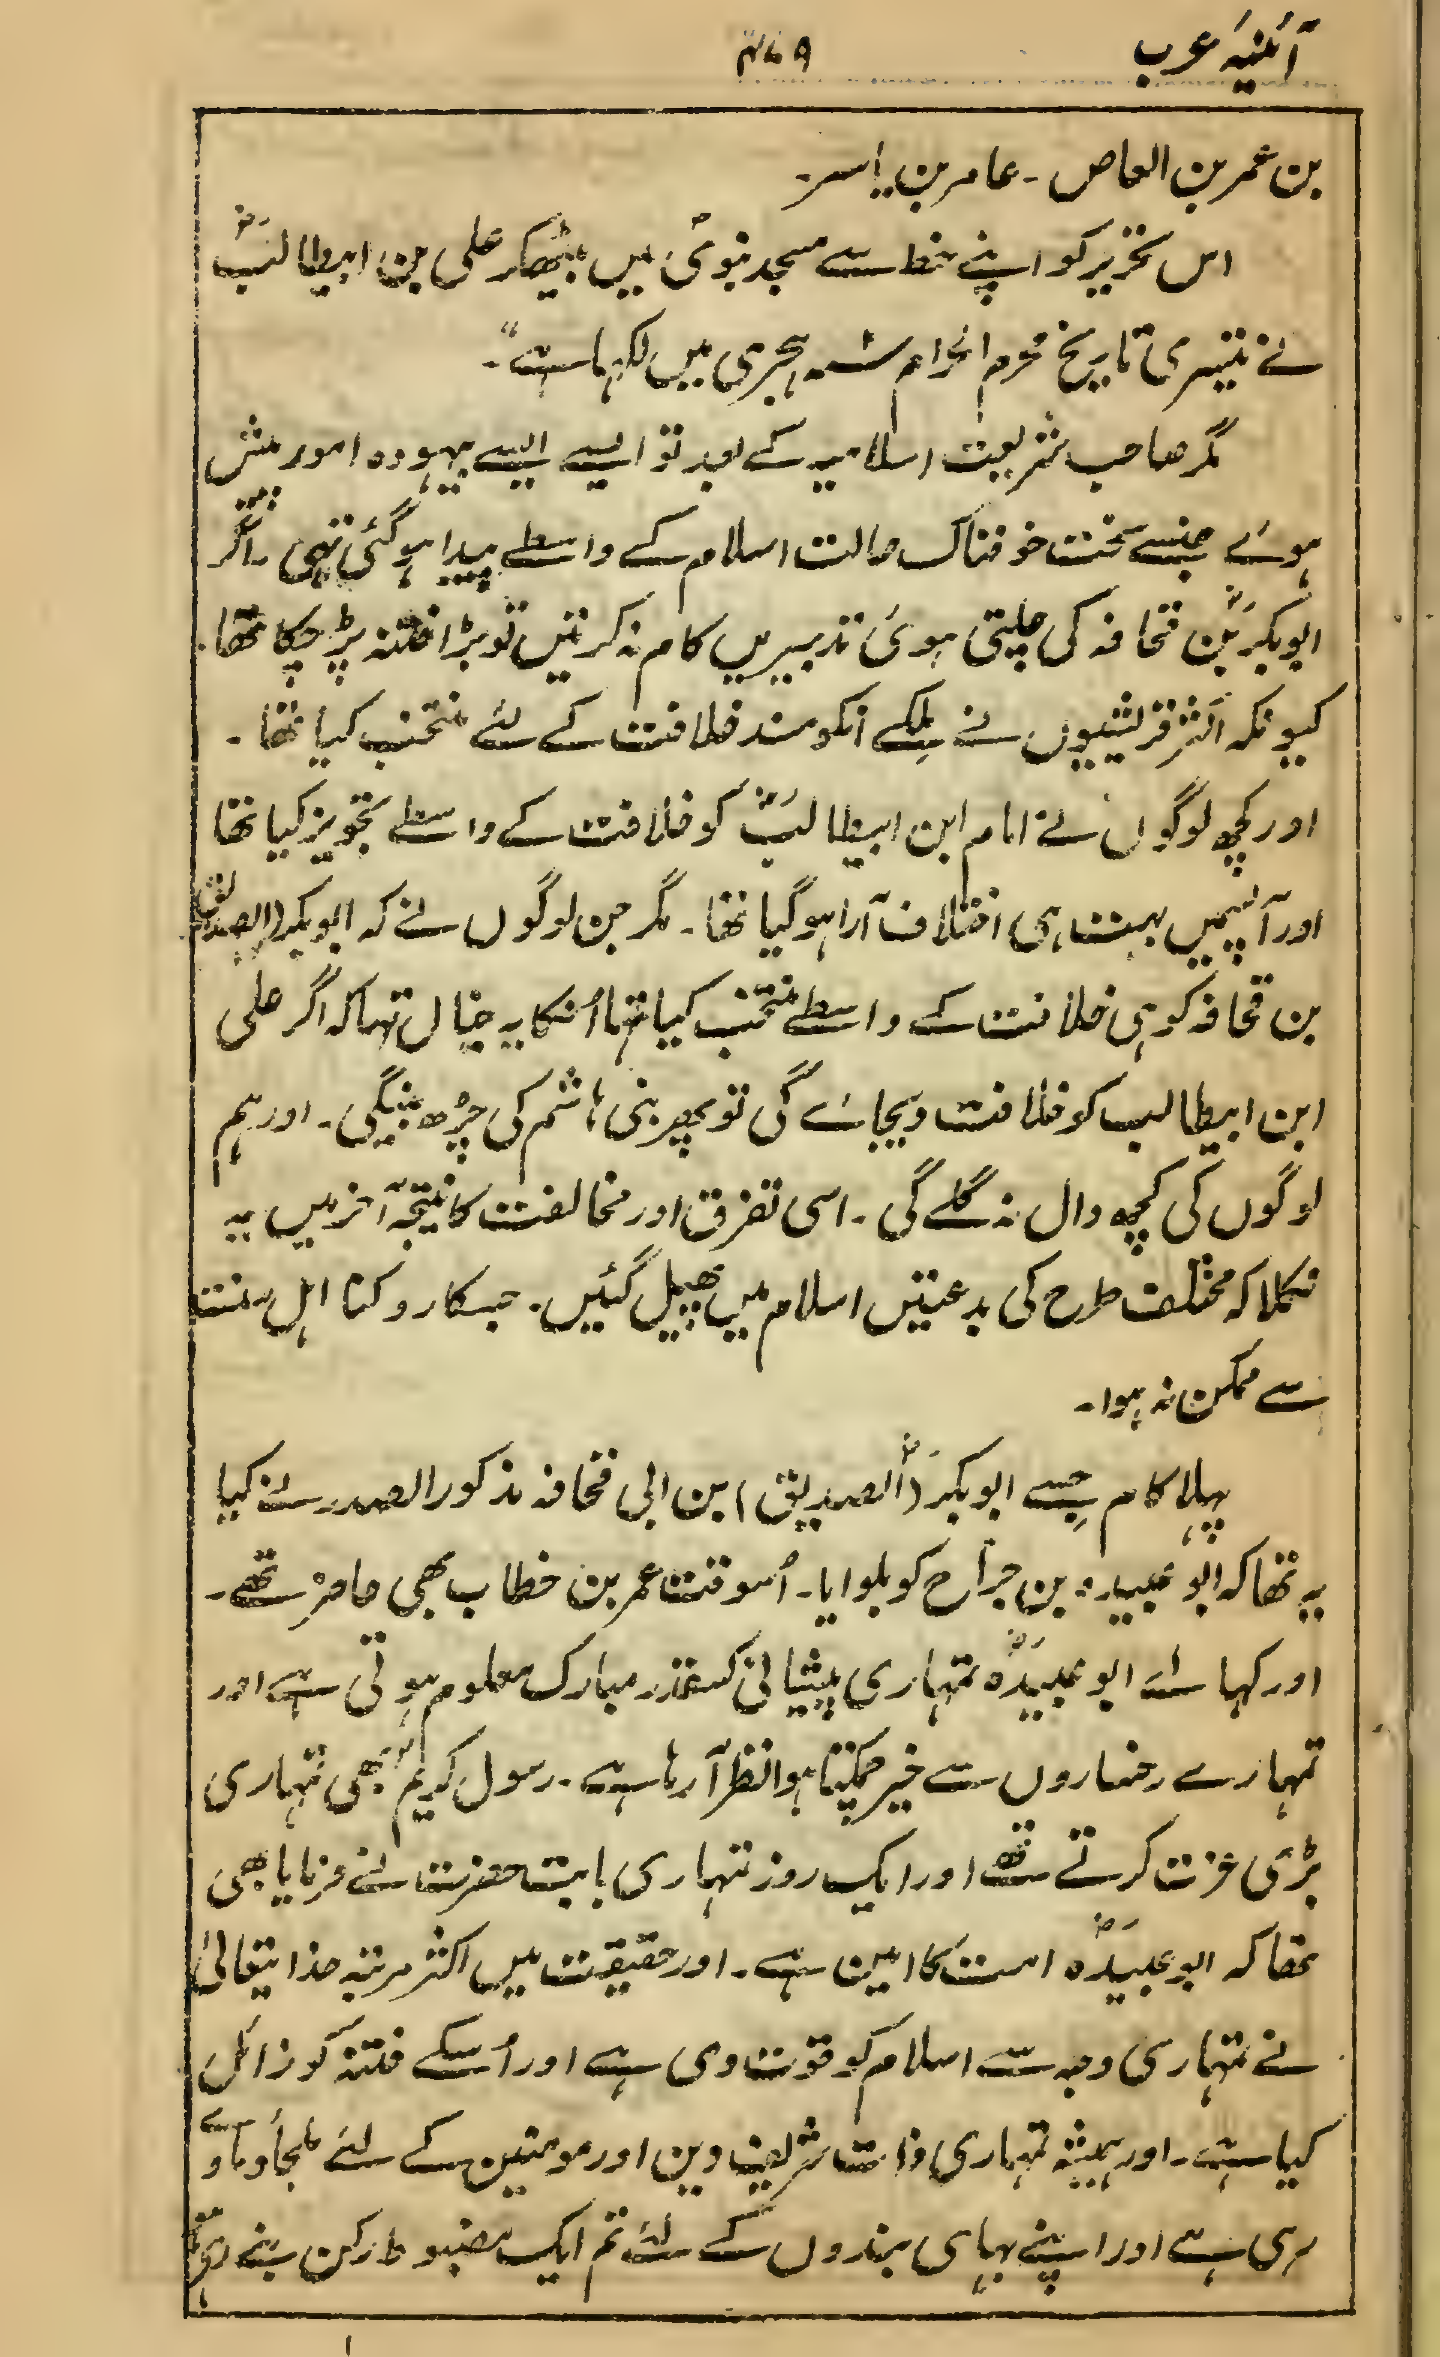 آئنیہ عرب
۴۶۹
بن عمر بن العاص - عامر بن یاسر -
اس تحریر کو اپنے خط سے مسجد نبویؐ میں بیٹھکر علی بن ابیطالبؓ
نے تیسری تاریخ محرم الحرام سنہ ہجری میں لکہا ہے" -
مگر صاحب شریعت اسلامیہ کے بعد تو ایسے ایسے بیہودہ امور پیش
ہوئے جنسے سخت خوفناک حالت اسلام کے واسطے پیدا ہو گئی تہی - اگر
ابوبکرؓ بن قحافہ کی چلیتی ہوئی تدبیریں کام نہ کرتیں تو بڑا فتنہ پڑ چکا تھا -
کیونکہ اکثر قریشیوں نے ملکے انکو مسند خلافت کے لئے منتخب کیا تھا -
اور کچھ لوگوں نے امام ابن ابیطالبؓ کو خلافت کے واسطے تجویز کیا تھا
اور آپسمیں بہت ہی اختلاف آرا ہو گیا تھا - مگر جن لوگوں نے کہ ابوبکر (الصدیق)
بن قحافہ کو ہی خلافت کے واسطے منتخب کیا تہا اُنکا یہ خیال تہا کہ اگر علی
ابن ابیطالب کو خلافت دیجائے گی تو پھر بنی ہاشم کی چڑھ بنیگی - اور ہم
لوگوں کی کچھ دال نہ گلے گی - اسی تفرق اور مخالفت کا نتیجہ آخر میں یہ
نکلا کہ مختلف طرح کی بدعتیں اسلام میں پھیل گئیں - جسکا روکنا اہل سنت
سے ممکن نہ ہوا -
پہلا کام جِسے ابوبکرؓ (الصدیق) بن ابی قحافہ مذکور الصدر نے کیا
یہ تھا کہ ابو عبیدہ بن جراح کو بلوایا - اُسوقت عمر بن خطاب بھی حاضر تھے -
اور کہا اے ابو عبیدہؓ تمہاری پیشانی کسقدر مبارک معلوم ہوتی ہے اور
تمہارے رخساروں سے خیر چمکیتا ہوا نظر آ رہا ہے - رسول کریمؐ بھی تمہاری
بڑی عزت کرتے تھے اور ایک روز تمہاری بابت حضرت نے فرمایا بھی
تھا کہ ابو عبیدہؓ امت کا امین ہے - اور حقیقت میں اکثر مرتبہ خدا یتعالیٰ
نے تمہاری وجہ سے اسلام کو قوت دی ہے اور اُسکے فتنہ کو زائل
کیا ہے - اور ہمیشہ تمہاری ذات شریف دین اور مومنین کے لئے ملجأ و ماوے
رہی ہے اور اپنے بہاہی بندوں کے لئے تم ایک مضبوط رکن بنے رہے